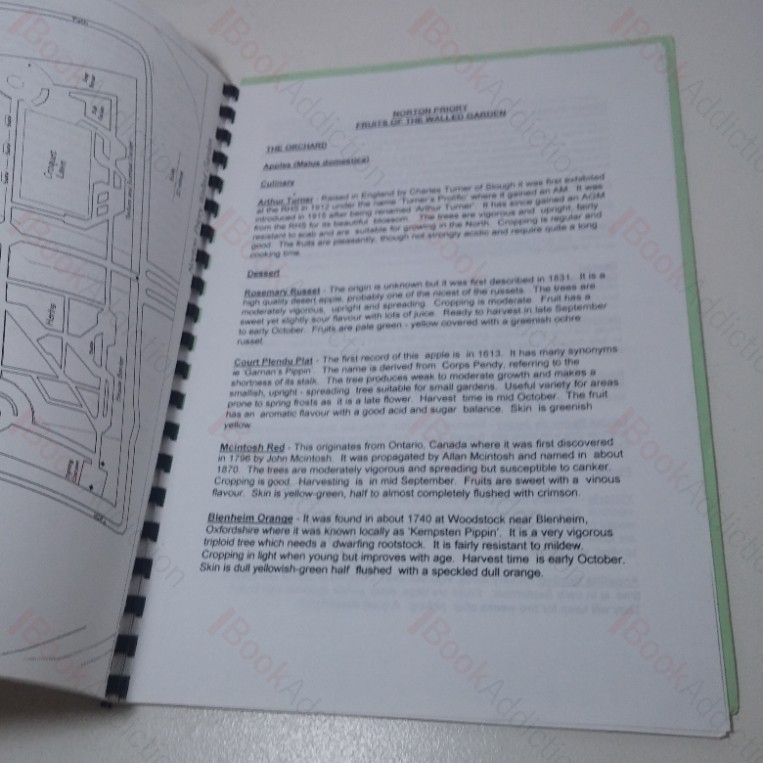 Path
Croquet
Lawn
Herbs
NORTON PRIORY
FRUITS OF THE WALLED GARDEN
THE ORCHARD
Apples (Malus domestica)
Culinary
Arthur Turner - Raised in England by Charles Turner of Slough it was first exhibited
at the RHS in 1912 under the name 'Turner's Prolific' where it gained an AM. It was
introduced in 1915 after being renamed 'Arthur Turner'. It has since gained an AGM
from the RHS for its beautiful blossom. The trees are vigorous and upright, fairly
resistant to scab and are suitable for growing in the North. Cropping is regular and
good. The fruits are pleasantly, though not strongly acidic and require quite a long
cooking time.
Dessert
Rosemary Russet - The origin is unknown but it was first described in 1831. It is a
high quality desert apple, probably one of the nicest of the russets. The trees are
moderately vigorous, upright and spreading. Cropping is moderate. Fruit has a
sweet yet slightly sour flavour with lots of juice. Ready to harvest in late September
to early October. Fruits are pale green - yellow covered with a greenish ochre
russet.
Court Plendu Plat - The first record of this apple is in 1613. It has many synonyms
ie 'Garnan's Pippin'. The name is derived from Corps Pendy, referring to the
shortness of its stalk. The tree produces weak to moderate growth and makes a
smallish, upright - spreading tree suitable for small gardens. Useful variety for areas
prone to spring frosts as it is a late flower. Harvest time is mid October. The fruit
has an aromatic flavour with a good acid and sugar balance. Skin is greenish
yellow
Mcintosh Red - This originates from Ontario, Canada where it was first discovered
in 1796 by John Mcintosh. It was propagated by Allan Mcintosh and named in about
1870. The trees are moderately vigorous and spreading but susceptible to canker.
Cropping is good. Harvesting is in mid September. Fruits are sweet with a vinous
flavour. Skin is yellow-green, half to almost completely flushed with crimson.
Blenheim Orange - It was found in about 1740 at Woodstock near Blenheim,
Oxfordshire where it was known locally as 'Kempsten Pippin'. It is a very vigorous
triploid tree which needs a dwarfing rootstock. It is fairly resistant to mildew.
Cropping in light when young but improves with age. Harvest time is early October.
Skin is dull yellowish-green half flushed with a speckled dull orange.
BookAddiction